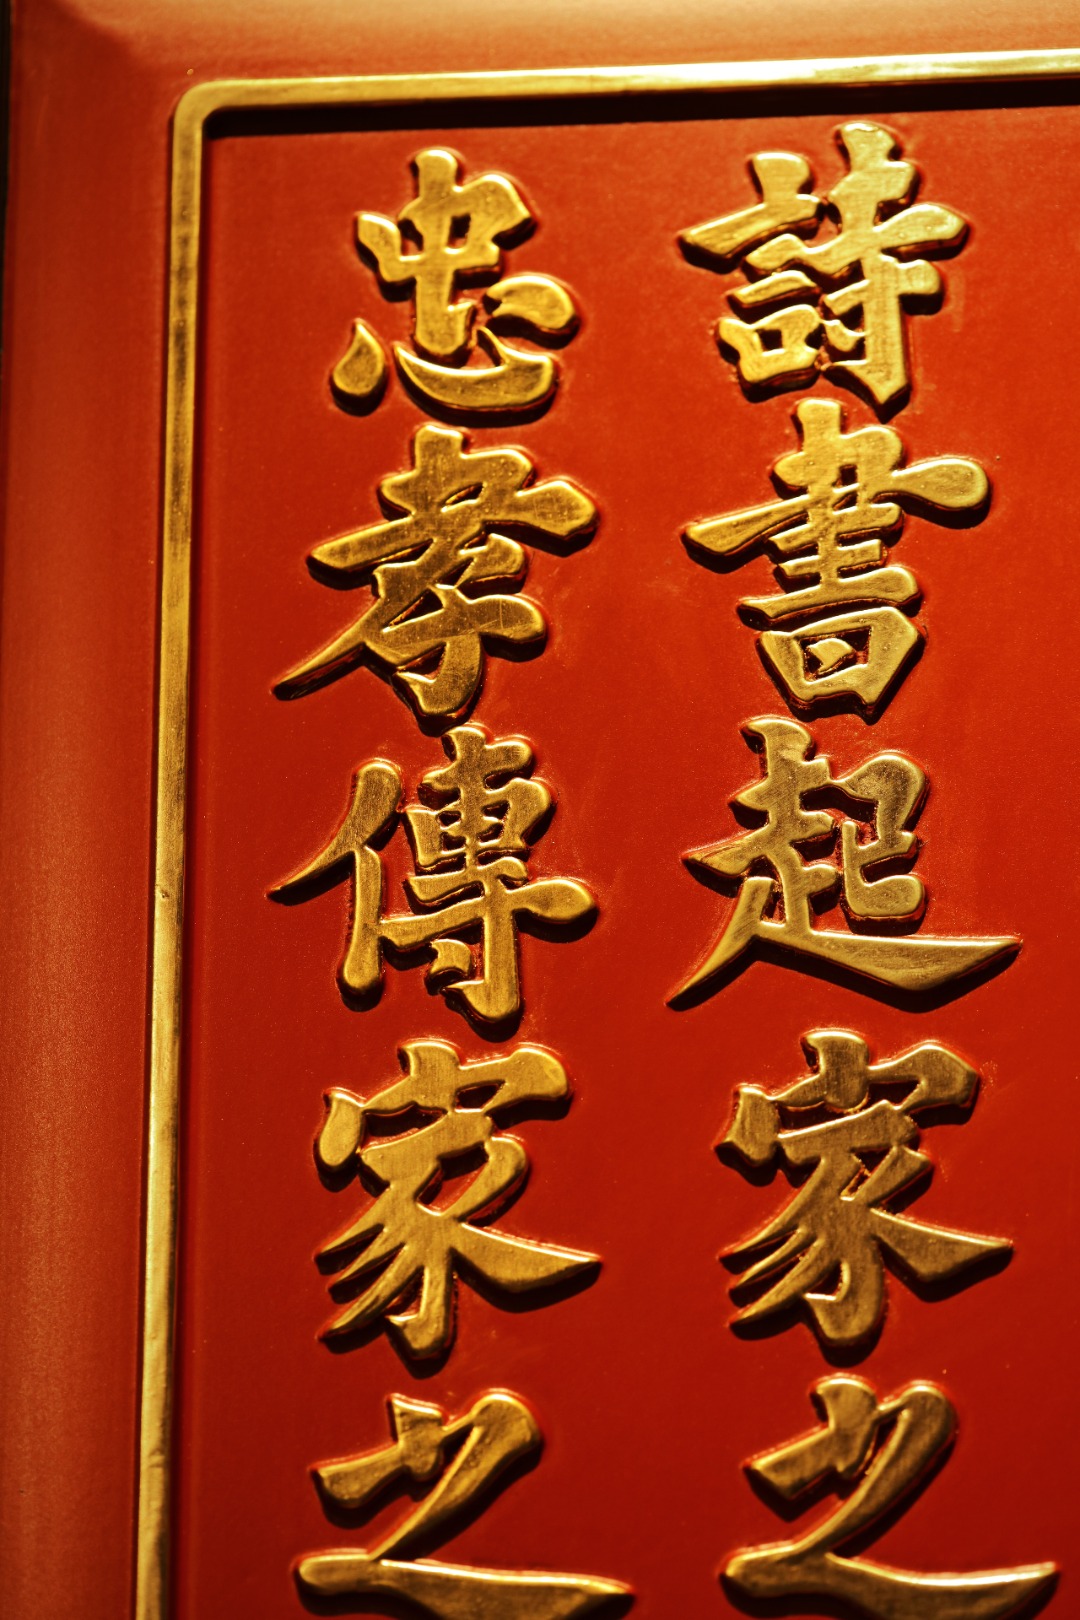 詩書起家之
忠孝傳家之